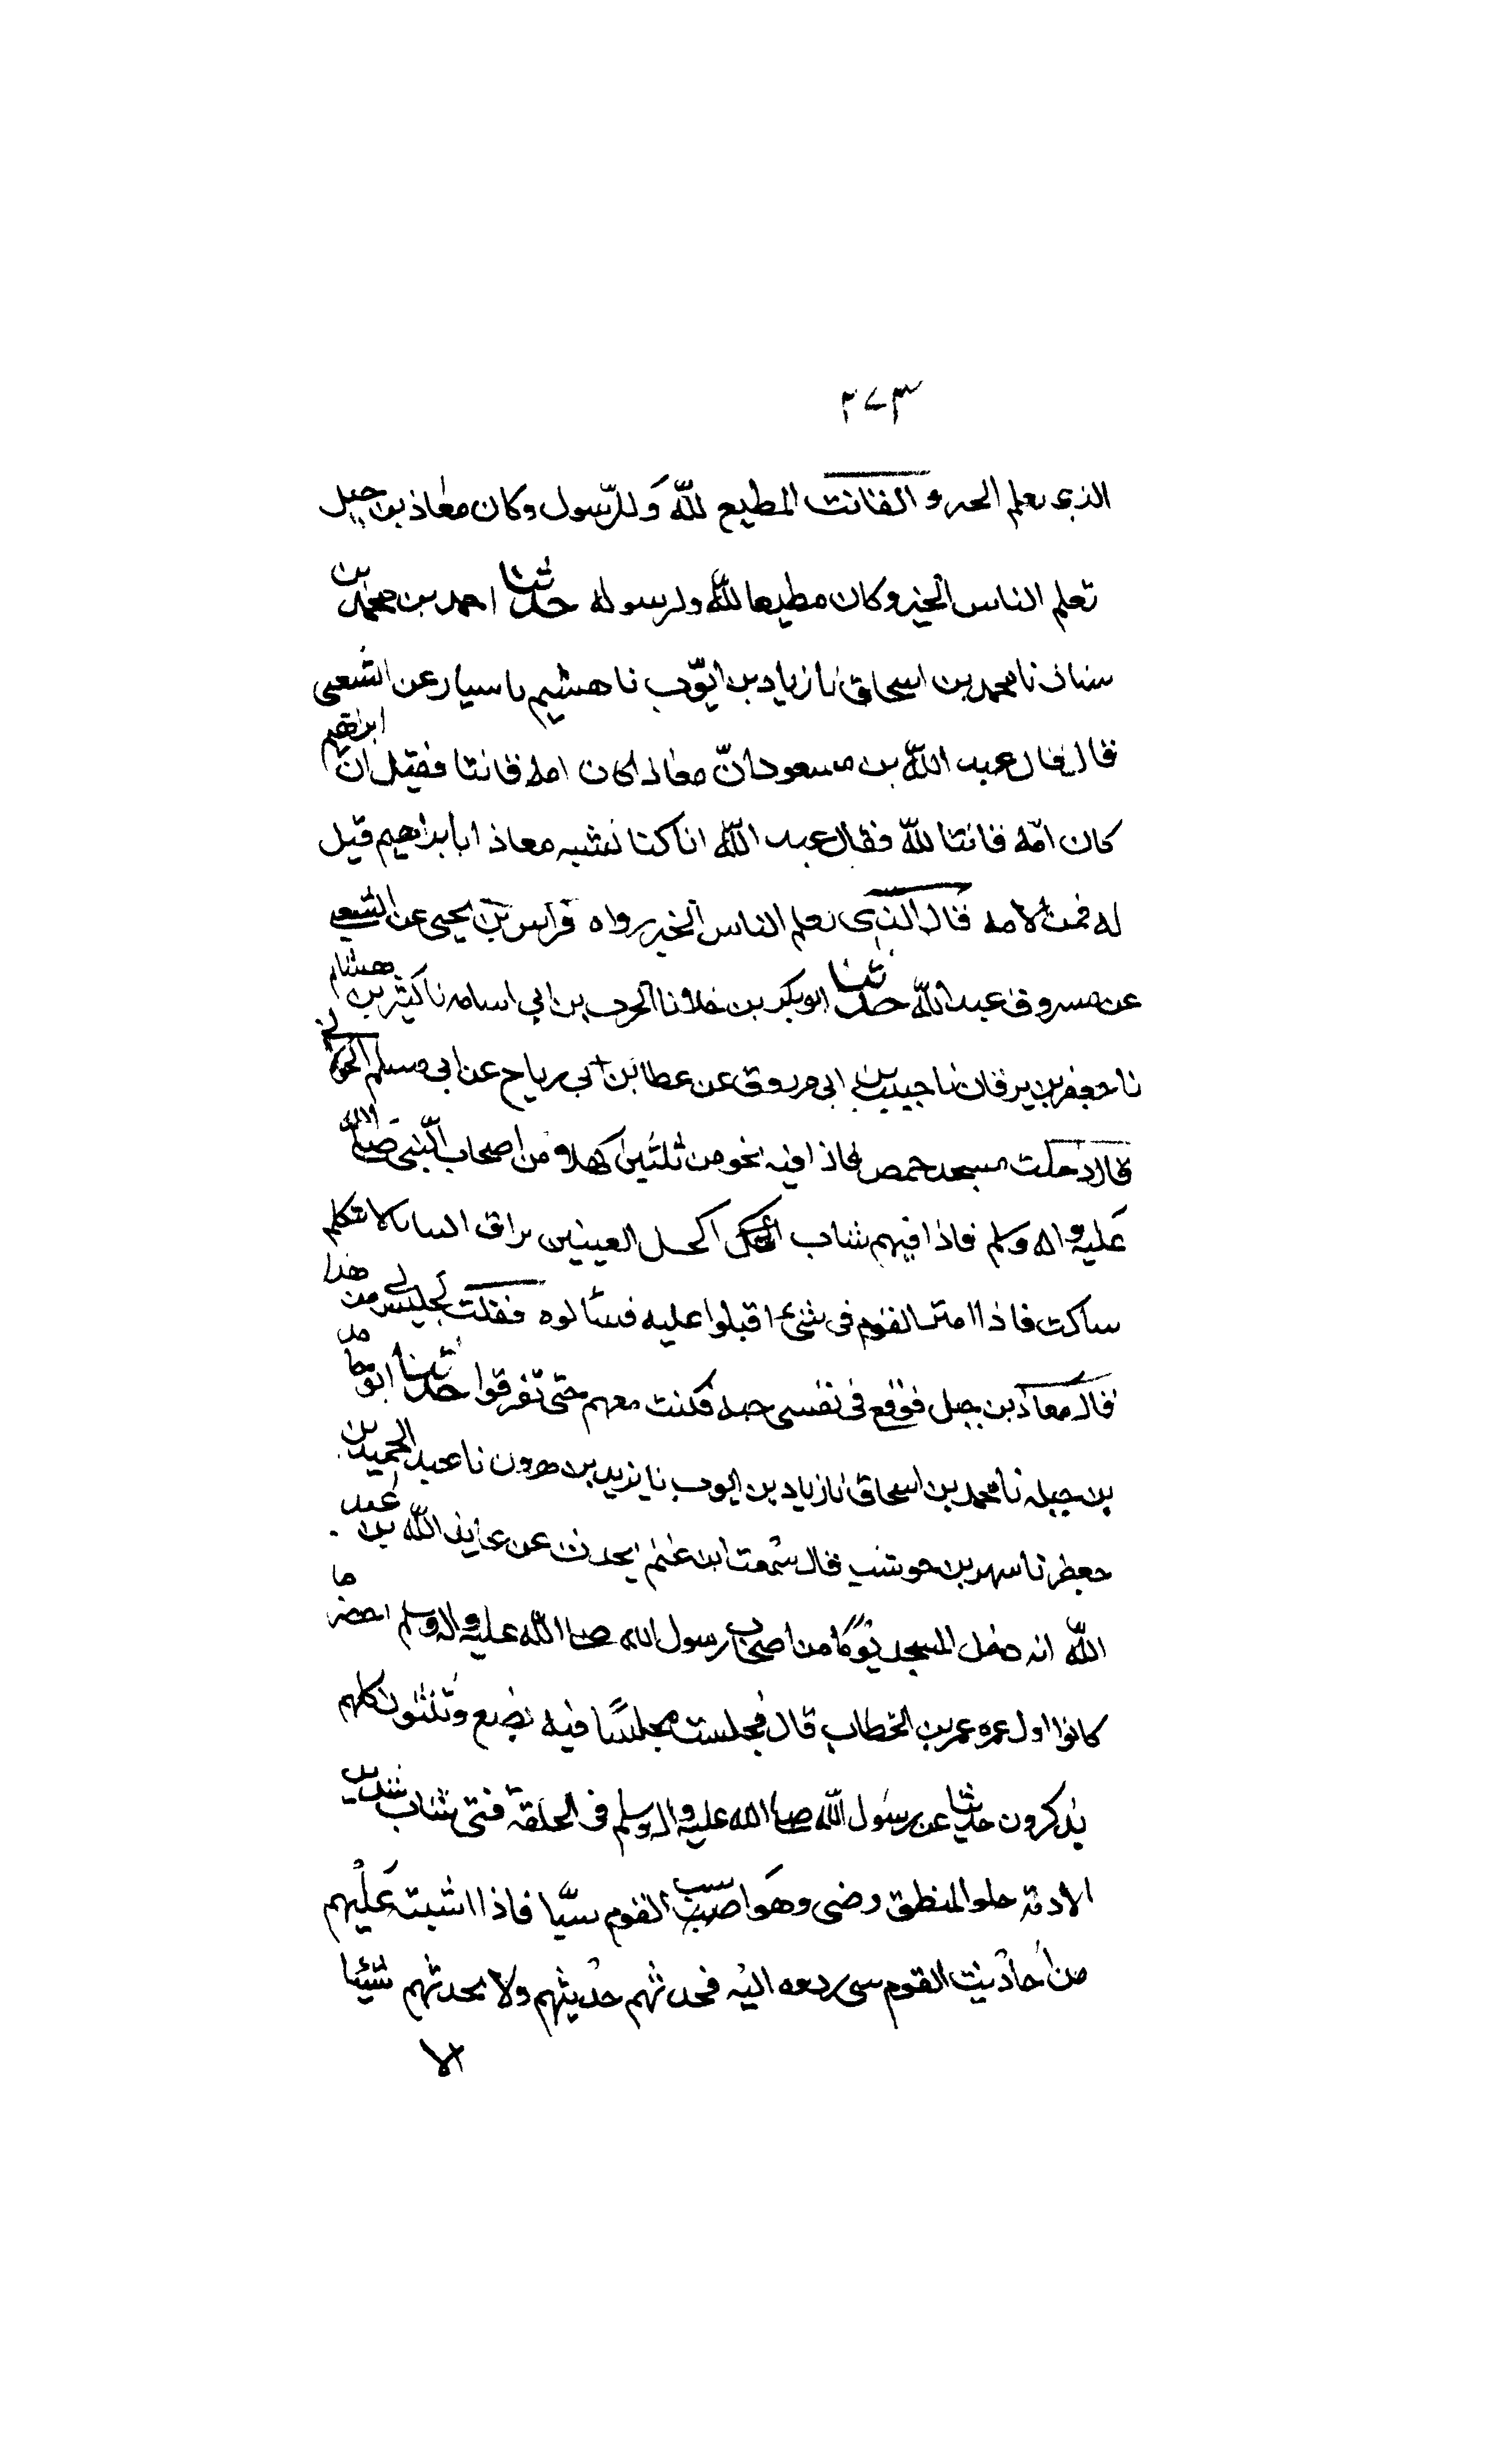 ٢٧٣
الذى يعلم الخير و القانت المطيع لله وللرسول وكان معاذ بن جبل
تعلم الناس الخير وكان مطيعا لله ولرسوله حدثنا احمد بن محمد بن
سنان نا محمد بن اسحاق نا زياد بن ايّوب نا هشيم نا سيار عن الشعبى
قال قال عبد الله بن مسعود انّ معاذا كان امة قانتا فقيل انّ ابراهيم
كان امّة قانتا لله فقال عبد الله انا كنا نشبه معاذ ابابراهيم قيل
له فمن الامه قال الذى يعلم الناس الخير رواه فراس بن يحيى عن الشعبى
عن مسروق عبد الله حدثنا ابوبكر بن خلاد نا الحرث بن ابى اسامه نا كثير بن هشام
نا جعفر بن برقان نا حبيب بن ابى مرزوق عن عطا بن ابى رباح عن ابى مسلم الخولانى
قال دخلت مسجد حمص فاذا فيه نحو من ثلثين كهلا من اصحاب النّبى صلى الله
عليه واله وسلم فاذا فيهم شاب اكحل العينين براق الثنايا لا يتكلم
ساكت فاذا امترا القوم فى شئ اقبلوا عليه فسألوه فقلت لجليس لى من هذا
قال معاذ بن جبل فوقع فى نفسى حبه فكنت معهم حتى تفرقوا حدثنا ابو حامد
بن جبله نا محمد بن اسحاق نا زياد بن ايوب نا يزيد بن هرون نا عبد الحميد بن
نا شهر بن حوشب قال سمعت ابن غنم يحدث عن عايذ الله بن عبد
الله انه دخل المسجد يوما من اصحاب رسول الله صلى الله عليه واله وسلم احضر ما
كانوا اول عمره عمر بن الخطاب قال فجلست مجلسًا فيه بضع وثلثون كلهم
يذكرون حديثا عن رسول الله صلى الله عليه واله وسلم فى الحلقة فتى شاب شديد
الادمة حلو المنطق وضى وهو اصبب القوم سنّا فاذا اشتبه عليهم
من احاديث القوم شى ردوه اليه فحدثهم حديثهم ولا يحدثهم شيئا
الا